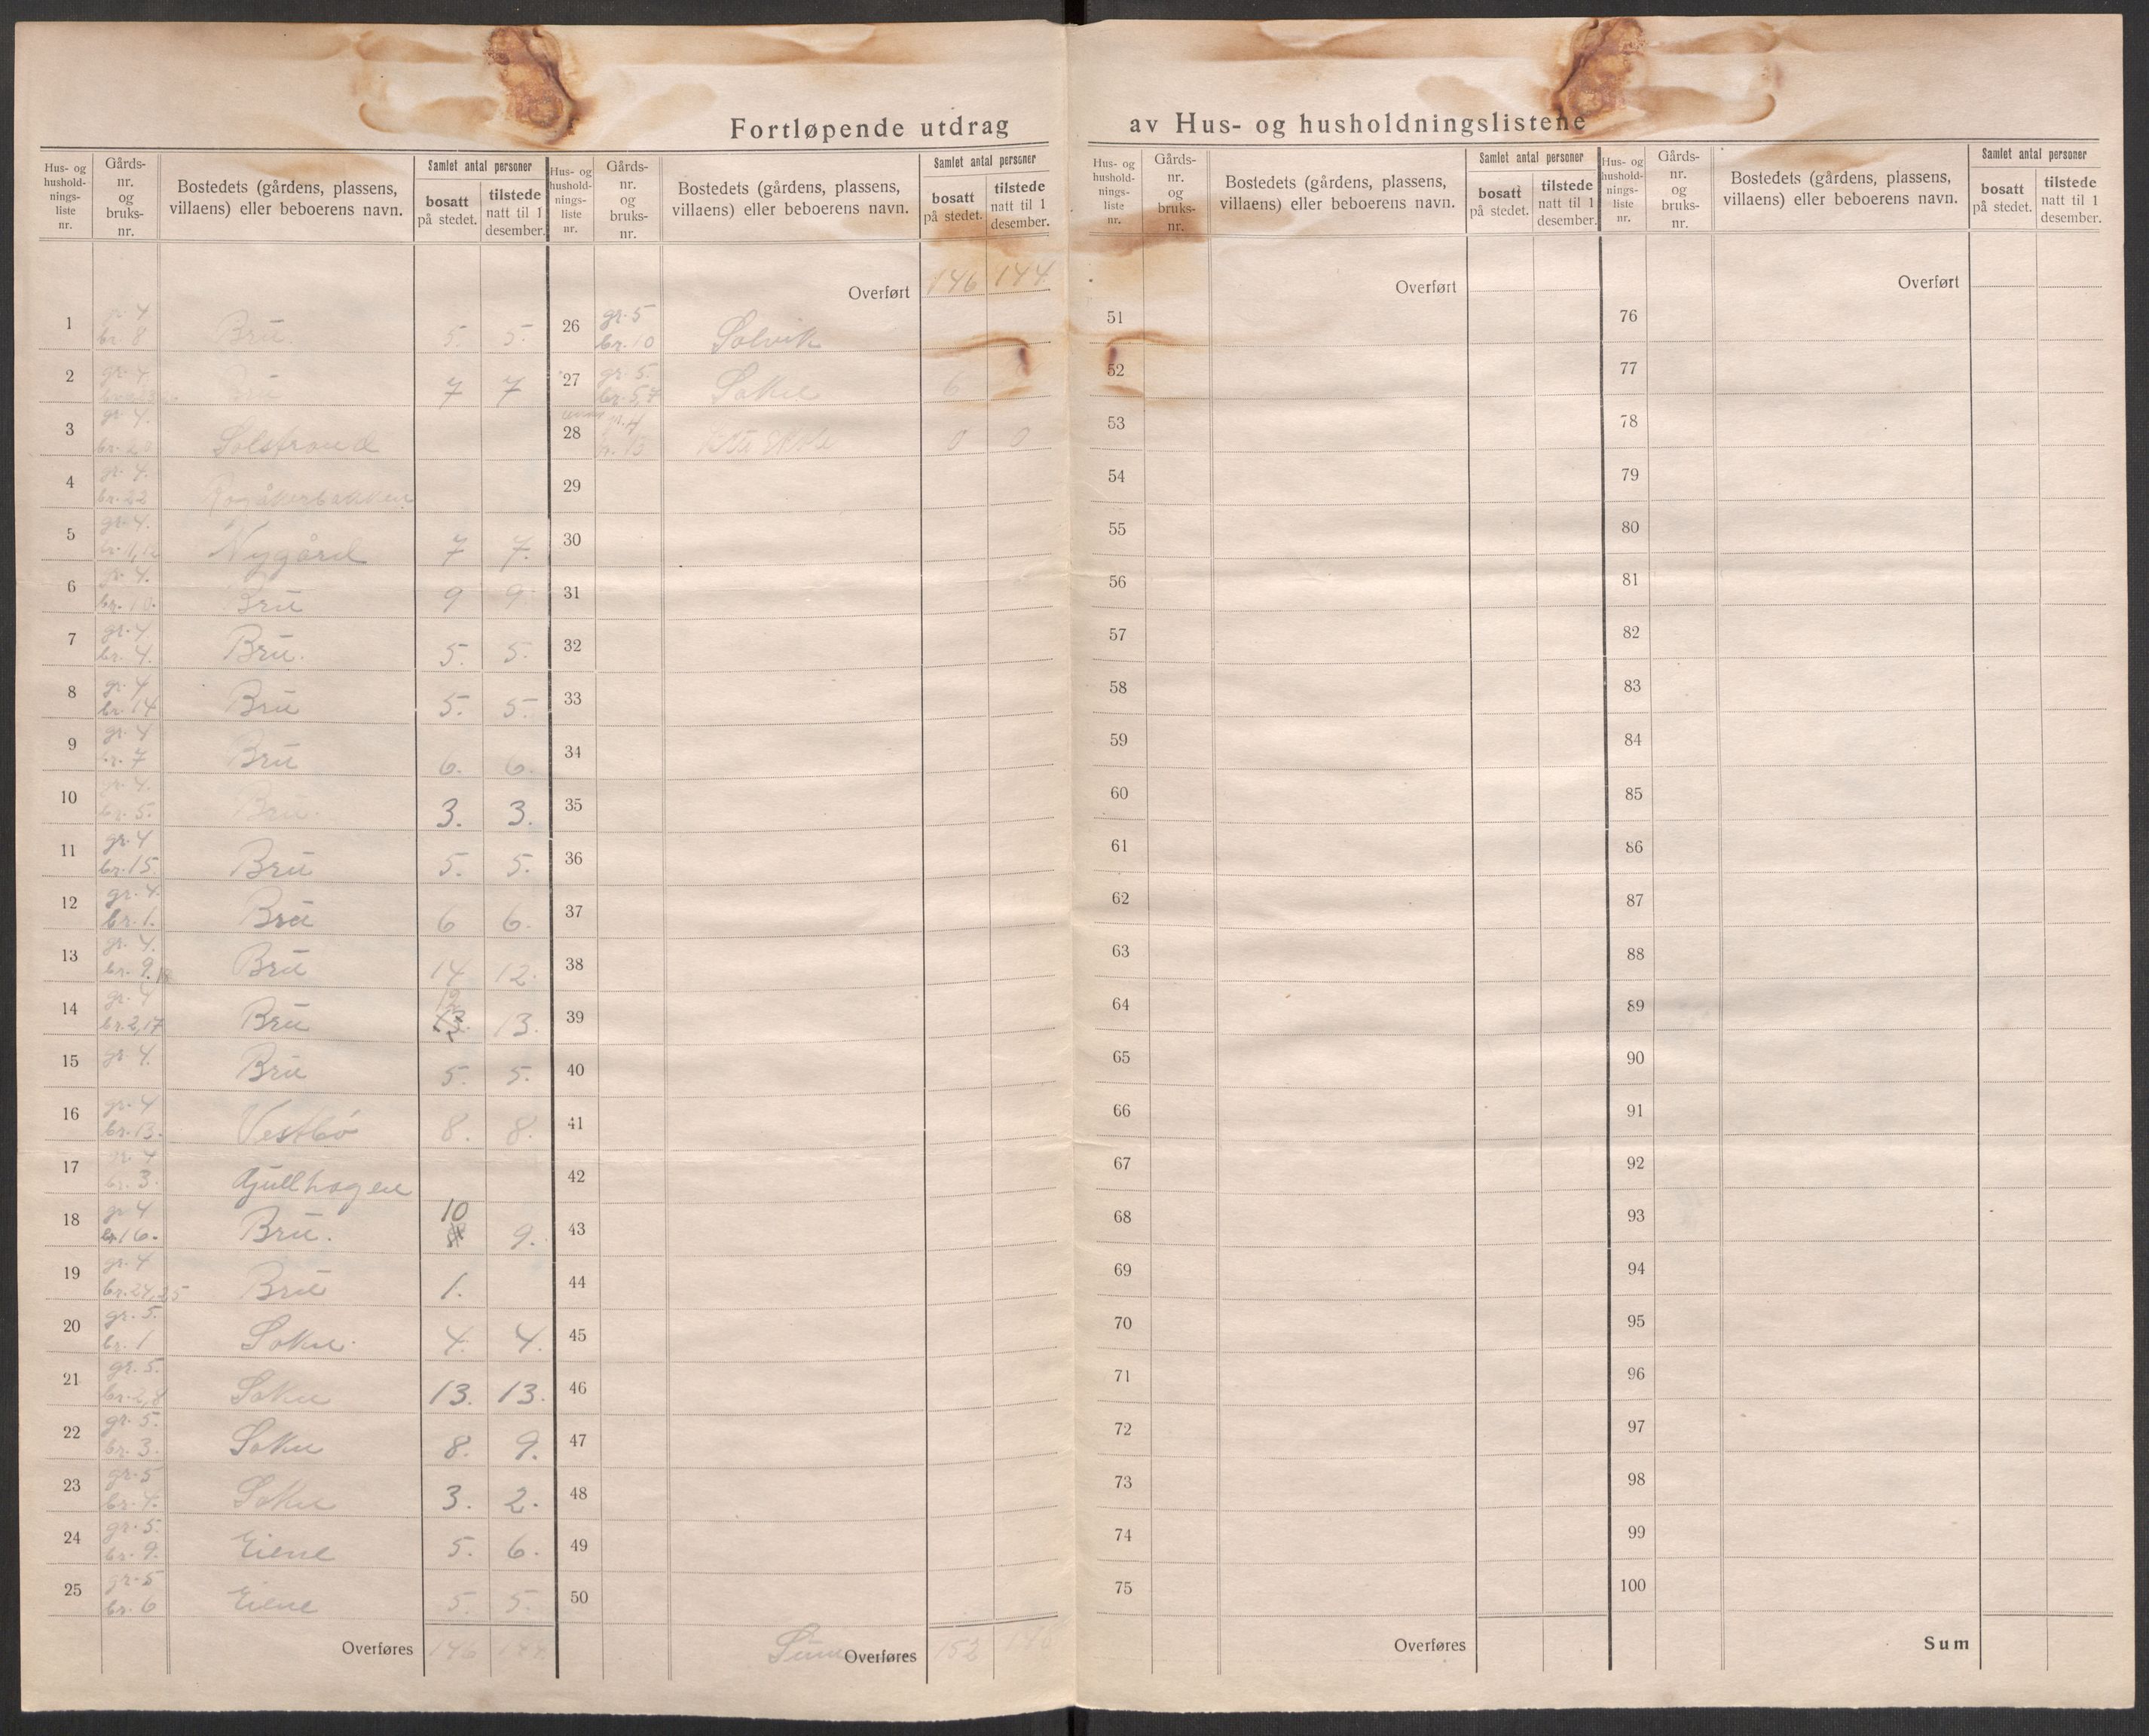 Fortløpende utdrag av Hus- og husholdningslistene
Hus- og hushold- nings- liste nr.
Gårds- nr. og bruks- nr.
Bostedets (gårdens, plassens, villaens) eller beboerens navn.
Samlet antal personer
bosatt på stedet.
tilstede natt til 1 desember.
1 gr. 4 br. 8 Bru 5. 5.
2 gr. 4 Bru 7 7
3 gr. 4. br. 20 Solstrand
4 gr. 4. br. 22
5 gr. 4. br. 11,12 Nygård 7 7.
6 gr. 4. br. 10. Bru 9 9
7 gr. 4 br. 4. Bru. 5. 5.
8 gr. 4 br. 14 Bru 5. 5.
9 gr. 4 br. 7 Bru 6. 6.
10 gr. 4. br. 5. Bru. 3. 3.
11 gr. 4 br. 15. Bru 5. 5.
12 gr. 4. br. 1. Bru 6 6.
13 gr. 4. br. 9. Bru 14 12.
14 gr. 4 br. 2,17 Bru 12 13 13.
15 gr. 4. Bru 5. 5.
16 gr. 4 br. 13. Vestbø 8. 8.
17 gr. 4 br. 3. Gjullhagen
18 gr. 4 br. 16. Bru. 10 9.
19 gr. 4 br. 24,25 Bru 1.
20 gr. 5. br. 1 Sokn. 4. 4.
21 gr. 5. br. 2,8 Sokn 13. 13.
22 gr. 5. br. 3. Sokn 8. 9.
23 gr. 5 br. 4. Sokn 3. 2.
24 gr. 5. br. 9. Eiene 5. 6.
25 gr. 5 br. 6 Eiene 5. 5.
Overføres 146 144
Hus- og hushold- nings- liste nr.
Gårds- nr. og bruks- nr.
Bostedets (gårdens, plassens, villaens) eller beboerens navn.
Samlet antal personer
bosatt på stedet.
tilstede natt til 1 desember.
Overført 146 144
26 gr. 5 br. 10 Solvik
27 gr. 5. br. 5,7 Sokn 6
28 0 0
29
30
31
32
33
34
35
36
37
38
39
40
41
42
43
44
45
46
47
48
49
50
Sum Overføres 152
Hus- og hushold- nings- liste nr.
Gårds- nr. og bruks- nr.
Bostedets (gårdens, plassens, villaens) eller beboerens navn.
Samlet antal personer
bosatt på stedet.
tilstede natt til 1 desember.
Overført
51
52
53
54
55
56
57
58
59
60
61
62
63
64
65
66
67
68
69
70
71
72
73
74
75
Overføres
Hus- og hushold- nings- liste nr.
Gårds- nr. og bruks- nr.
Bostedets (gårdens, plassens, villaens) eller beboerens navn.
Samlet antal personer
bosatt på stedet.
tilstede natt til 1 desember.
Overført
76
77
78
79
80
81
82
83
84
85
86
87
88
89
90
91
92
93
94
95
96
97
98
99
100
Sum